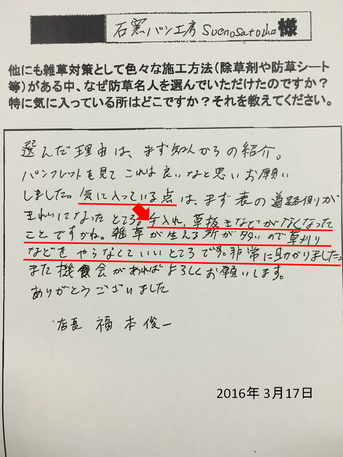 石窯パン工房 SuenoSatoka 様
他にも雑草対策として色々な施工方法（除草剤や防草シート
等）がある中、なぜ防草名人を選んでいただけたのですか？
特に気に入っている所はどこですか？それを教えてください。
選んだ理由は、まず知人からの紹介。
パンフレットを見てこれは良いなと思いお願い
しました。気に入っている点は、まず表の道路側が
きれいになったところ。手入れ、草抜きなどがなくなった
ことですかね。雑草が生える所が多いので草刈り
などをやらなくていいところです。非常に助かりました。
また機会があればよろしくお願いします。
ありがとうございました
店長 福本俊一
2016年 3月17日